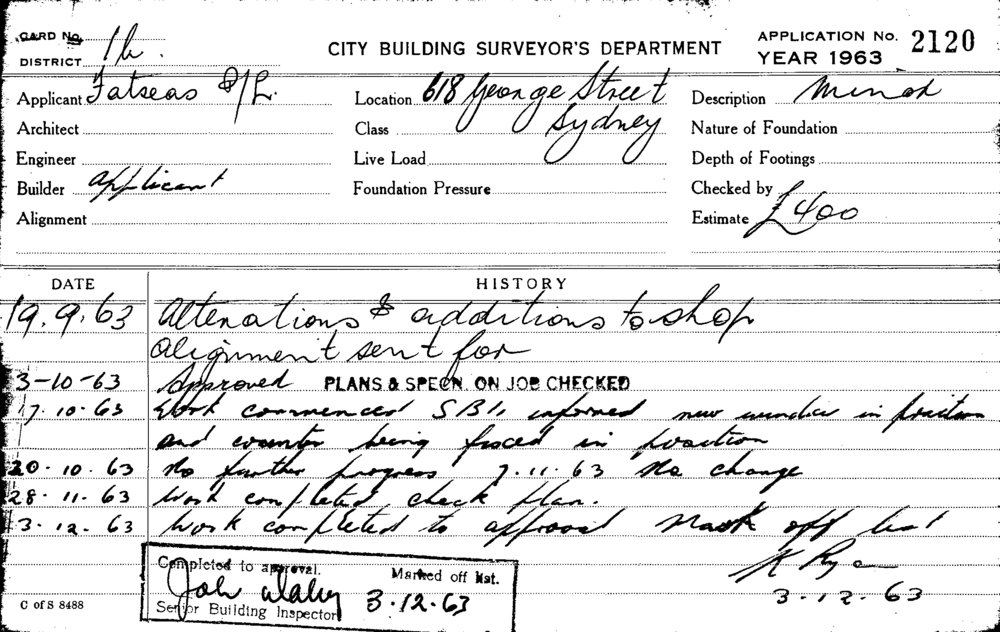 CARD No.
DISTRICT 1b.
CITY BUILDING SURVEYOR'S DEPARTMENT
APPLICATION No. 2120
YEAR 1963
Applicant Fatseas P/L.
Location 618 George Street
Sydney
Description Minor
Architect
Class
Nature of Foundation
Engineer
Live Load
Depth of Footings
Builder Applicant
Foundation Pressure
Checked by
Alignment
Estimate £400
DATE
HISTORY
19.9.63 Alterations & additions to shop
Alignment sent for
3-10-63 Approved PLANS & SPECN. ON JOB CHECKED
17.10.63 Work commenced informed new window in position
and counter being fixed in position
20.10.63 No further progress 7.11.63 No change
28.11.63 Work completed, check plan.
3.12.63 Work completed to approval Mark off list
K Ryan
3.12.63
Completed to approval. Marked off list.
3.12.63
Senior Building Inspector
C of S 8488